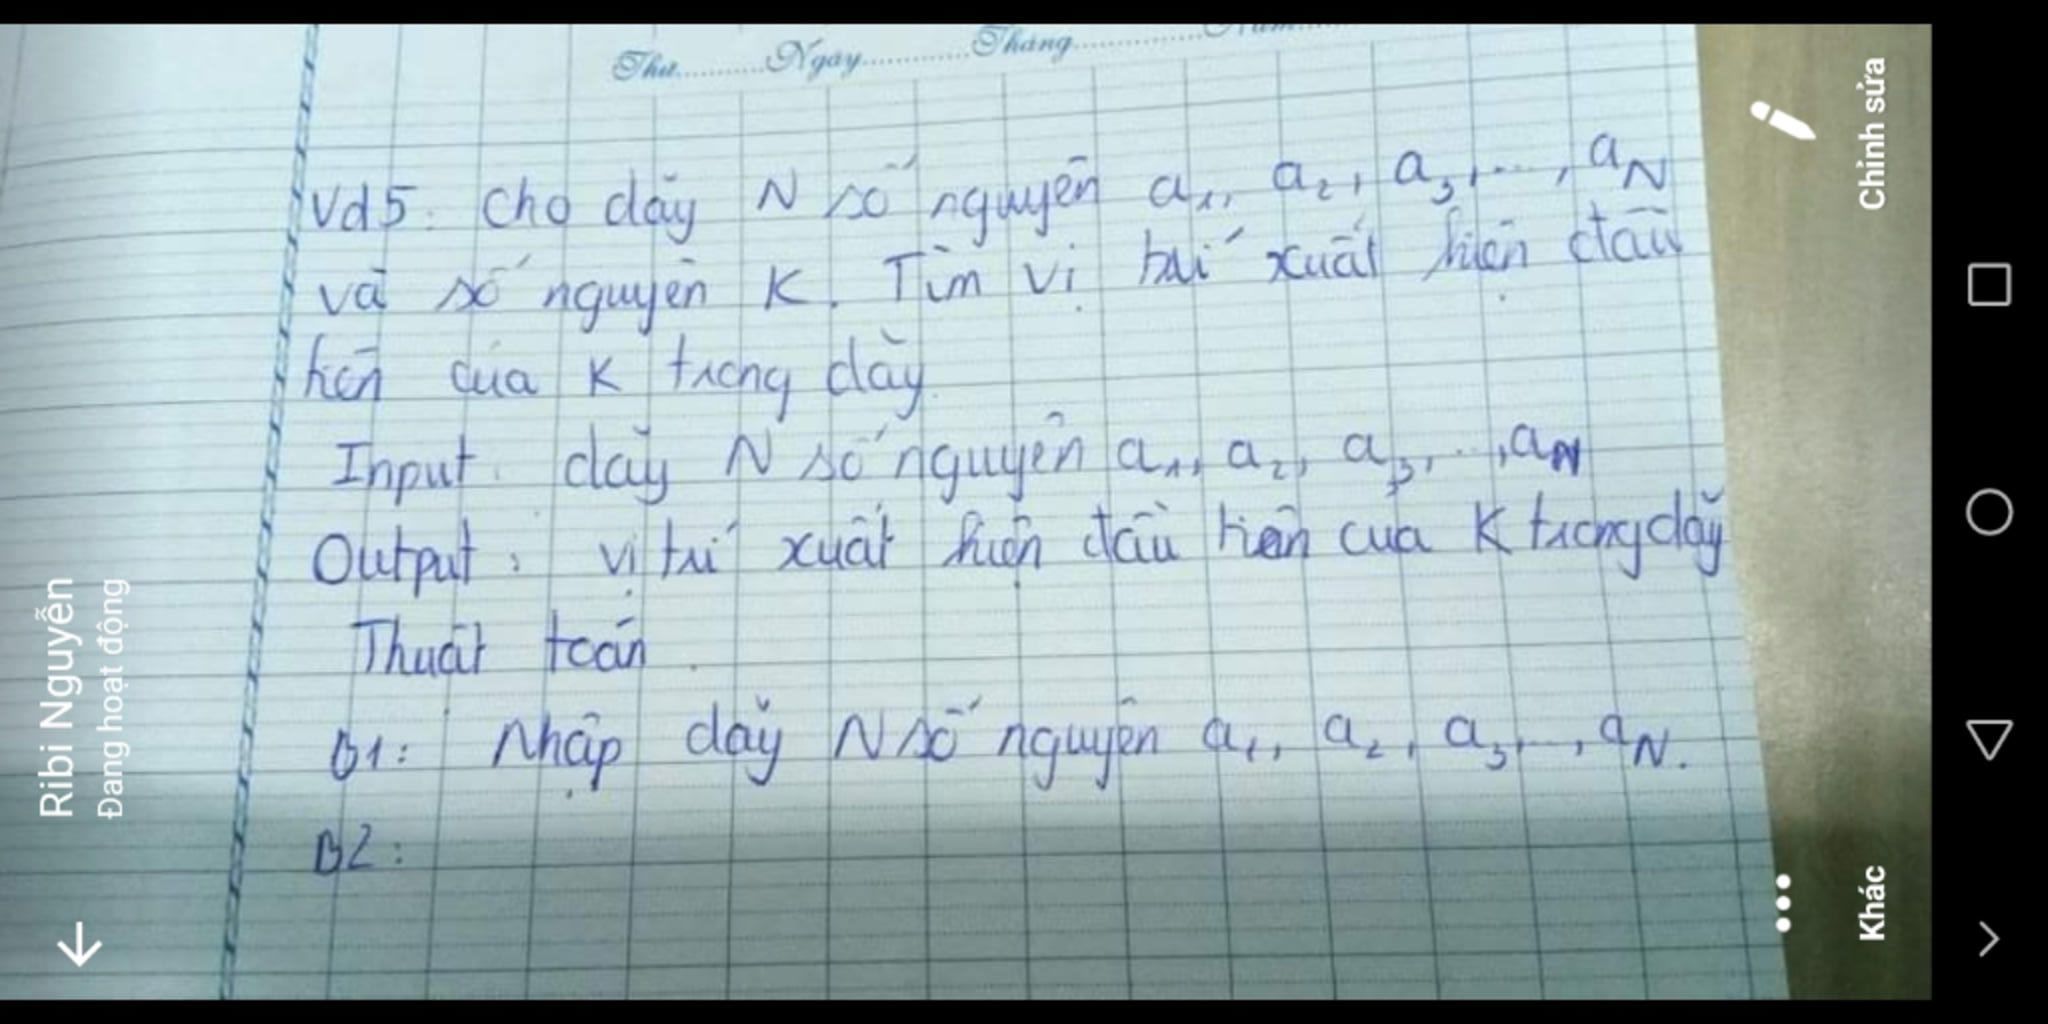 Thứ..........Ngày............Tháng..............Năm......
Vd5: Cho dãy N số nguyên a₁, a₂, a₃, ..., aN
và số nguyên K. Tìm vị trí xuất hiện đầu
tiên của K trong dãy.
Input: dãy N số nguyên a₁, a₂, a₃, ..., aN
Output: vị trí xuất hiện đầu tiên của K trong dãy
Thuật toán.
B1: Nhập dãy N số nguyên a₁, a₂, a₃, ..., aN.
B2:
Ribi Nguyễn
Đang hoạt động
Chỉnh sửa
Khác